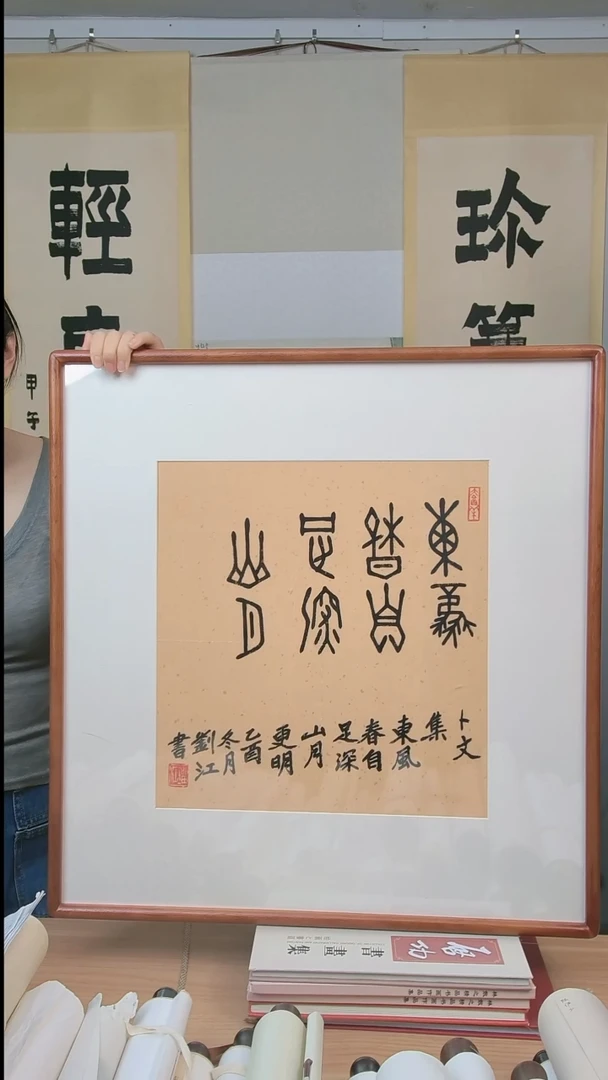 東風
春自
足深
山月
卜文
集
東風
春自
足深
山月
更明
乙酉
冬月
劉江
書
珍
輕
甲午
啟功
書畫集